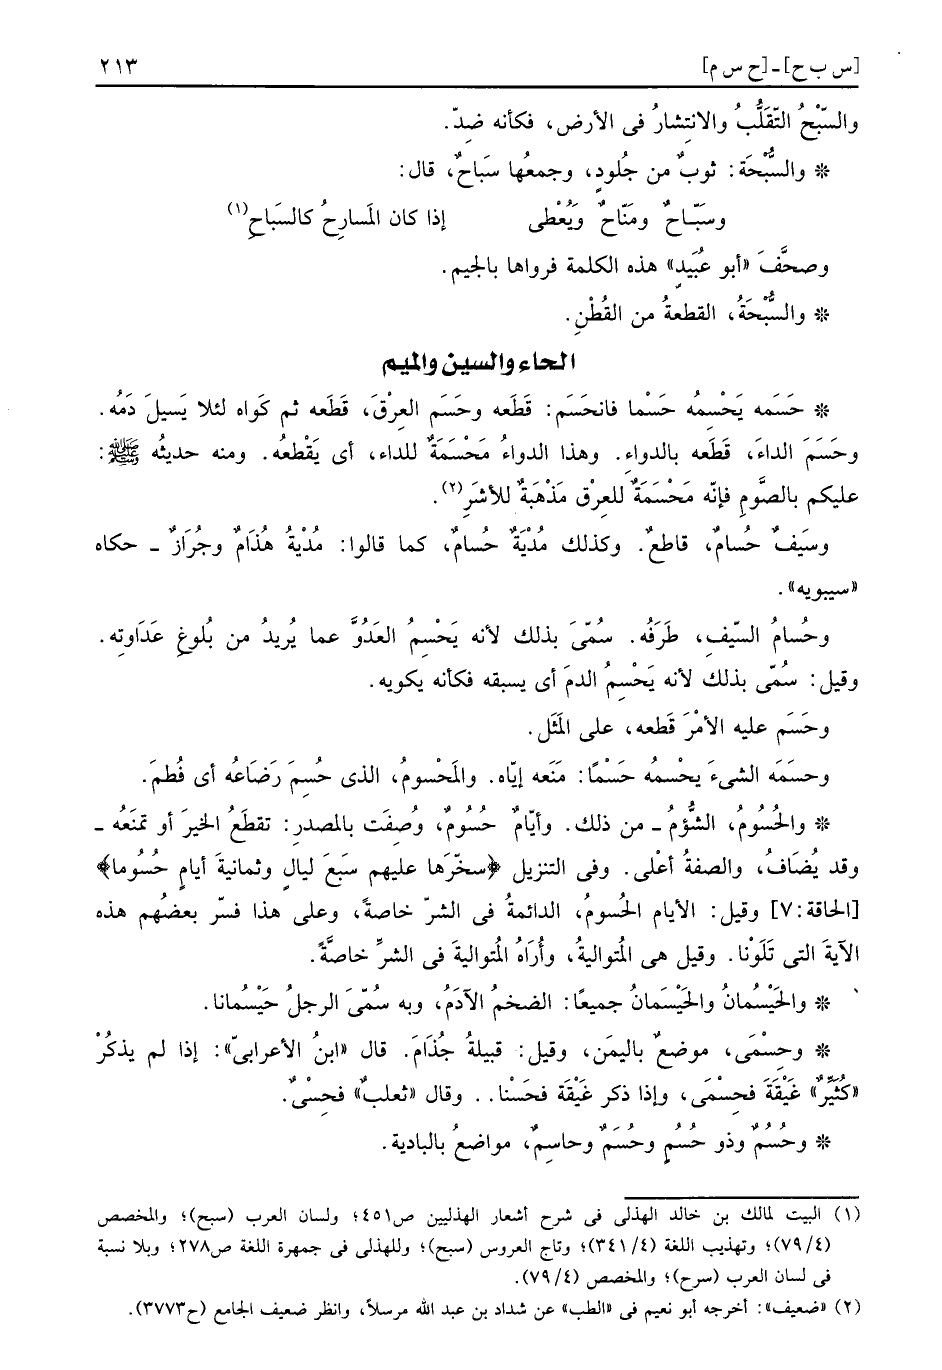 [س ب ح] ـ [ح س م]
٢١٣
والسَّبْحُ التَّقَلُّبُ والانتِشارُ فى الأرض، فكأنه ضِدّ.
* والسُّبْحَة: ثوبٌ من جُلودٍ، وجمعُها سَباحٌ، قال:
وسَبّاحٌ ومَنّاحٌ ويُعْطى إذا كان المَسارِحُ كالسَباحِ(١)
وصحَّفَ «أبو عُبَيدٍ» هذه الكلمة فرواها بالجيم.
* والسُّبْحَةُ، القطعةُ من القُطْنِ.
الحاء والسين والميم
* حَسَمه يَحْسِمُه حَسْما فانحَسَم: قَطَعه وحَسَم العِرْقَ، قَطَعه ثم كَواه لئلا يَسيلَ دَمُه.
وحَسَمَ الداءَ، قَطَعه بالدواءِ. وهذا الدواءُ مَحْسَمَةٌ للداء، أى يَقْطعُه. ومنه حديثُه ﷺ:
عليكم بالصَّومِ فإنّه مَحْسَمَةٌ للعِرْق مَذْهَبَةٌ للأشَرِ(٢).
وسَيفٌ حُسامٌ، قاطعٌ. وكذلك مُدْيَةٌ حُسامٌ، كما قالوا: مُدْيةُ هُذَامٌ وجُرَازٌ ـ حكاه
«سيبويه».
وحُسامُ السّيفِ، طَرَفُه. سُمّىَ بذلك لأنه يَحْسِمُ العَدُوَّ عما يُريدُ من بُلوغِ عَدَاوتِه.
وقيل: سُمّى بذلك لأنه يَحْسِمُ الدمَ أى يسبقه فكأنه يكويه.
وحَسَم عليه الأمْرَ قَطعه، على المَثَل.
وحسَمَه الشىءَ يحْسِمُه حَسْمًا: مَنَعه إيّاه. والمَحْسومُ، الذى حُسِمَ رَضَاعُه أى فُطمَ.
* والحُسُومُ، الشُّؤمُ ـ من ذلك. وأيّامٌ حُسُومٌ، وُصِفَت بالمصدر: تقطَعُ الخيرَ أو تمنَعُه ـ
وقد يُضَافُ، والصفةُ أعْلى. وفى التنزيل ﴿سخّرَها عليهم سَبَعَ ليالٍ وثمانيةَ أيامٍ حُسُوما﴾
[الحاقة:٧] وقيل: الأيام الحُسومُ، الدائمةُ فى الشرّ خاصةً، وعلى هذا فسّر بعضُهم هذه
الآيةَ التى تَلَوْنا. وقيل هى المُتواليةُ، وأُرَاهُ المُتواليةَ فى الشرِّ خاصَّةً.
* والحَيْسُمانُ والحَيْسَمانُ جميعًا: الضخمُ الآدَمُ، وبه سُمّىَ الرجلُ حَيْسُمانا.
* وحِسْمَى، موضعٌ باليمَن، وقيل: قبيلةُ جُذَامَ. قال «ابنُ الأعرابىّ»: إذا لم يذكرْ
«كُثَيِّرٌ» غَيْقَةَ فحِسْمَى، وإذا ذكر غَيْقَة فحَسْنا.. وقال «ثعلبٌ» فحِسْىٌ.
* وحُسُمٌ وذو حُسُمٍ وحُسَمٌ وحاسِمٌ، مواضعُ بالبادية.
(١) البيت لمالك بن خالد الهذلى فى شرح أشعار الهذليين ص٤٥١؛ ولسان العرب (سبح)؛ والمخصص
(٧٩/٤)؛ وتهذيب اللغة (٣٤١/٤)؛ وتاج العروس (سبح)؛ وللهذلى فى جمهرة اللغة ص٢٧٨؛ وبلا نسبة
فى لسان العرب (سرح)؛ والمخصص (٧٩/٤).
(٢) «ضعيف»: أخرجه أبو نعيم فى «الطب» عن شداد بن عبد الله مرسلاً، وانظر ضعيف الجامع (ح٣٧٧٣).